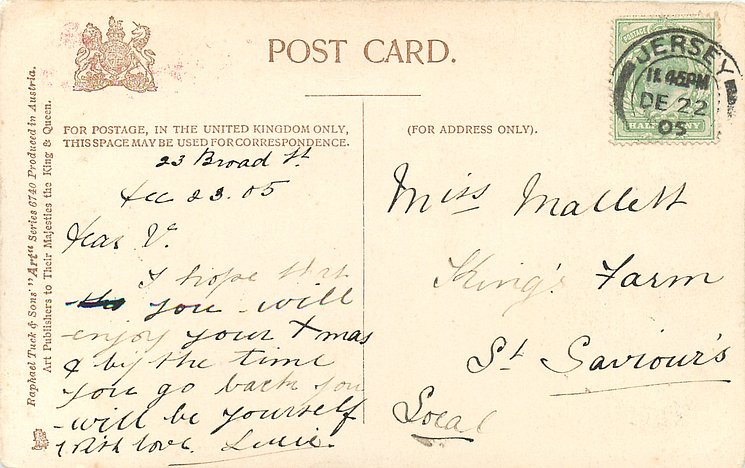 POST CARD.
FOR POSTAGE, IN THE UNITED KINGDOM ONLY,
THIS SPACE MAY BE USED FOR CORRESPONDENCE.
(FOR ADDRESS ONLY).
Raphael Tuck & Sons' "Art" Series 6740 Produced in Austria.
Art Publishers to Their Majesties the King & Queen.
JERSEY
11.45PM
DE 22
05
POSTAGE
HALFPENNY
23 Broad St
Dec 23.05
Dear V.
I hope that
you will
enjoy your Xmas
& by the time
you go back you
will be yourself
With love.
Miss Mallett
King's Farm
St Saviour's
Local